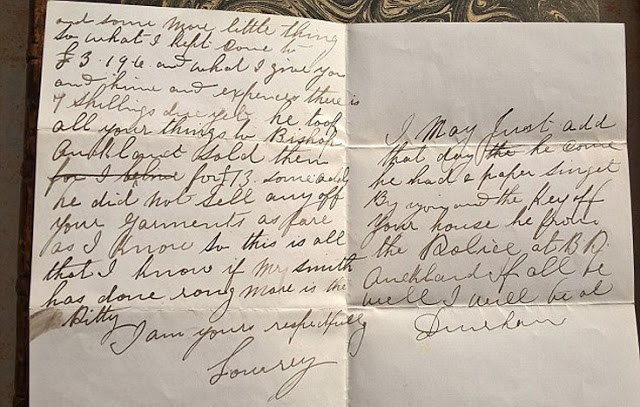 and some more little thing
so what I kept come to
£3.19.6. and what I give you
and hime and expences there is
7 shillings due he took
all your things to Bishop
Auckland sold them
for I for £13. some odd
he did not sell any off
your garments as fare
as I know so this is all
that I know if Mr Smith
has done rong more is the
Pitty
I am yours respectfully
Lowrey
I May Just add
that day the he come
he had a paper singet
By you and the Key off
your house he from
the Police at B A.
Auckland if all be
well I will be at
Durham